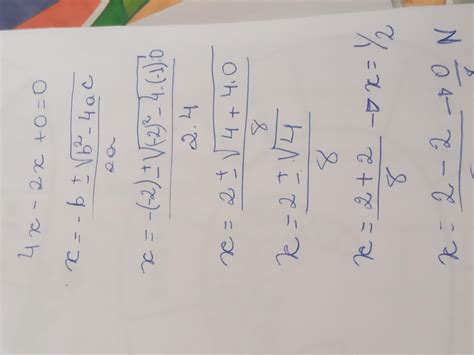 4x - 2x + 0 = 0
x = -b ± √b² - 4ac
2a
x = -(-2) ± √(-2)² - 4.(-1).0
2.4
x = 2 ± √4 + 4.0
8
x = 2 ± √4
8
x = 2 + 2 → x = 1/2
8
x = 2 - 2 → 0